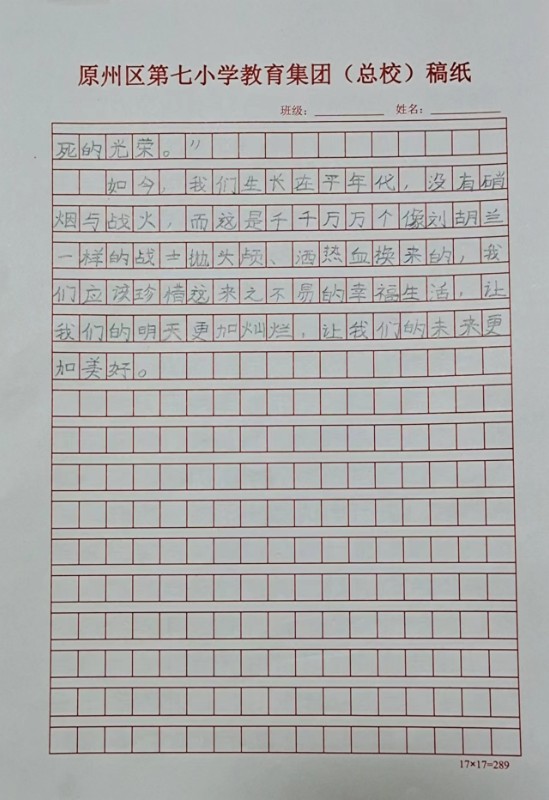 原州区第七小学教育集团（总校）稿纸
班级：	姓名：
死的光荣。”
如今，我们生长在平年代，没有硝
烟与战火，而这是千千万万个像刘胡兰
一样的战士抛头颅、洒热血换来的，我
们应该珍惜这来之不易的幸福生活，让
我们的明天更加灿烂，让我们的未来更
加美好。
17×17=289